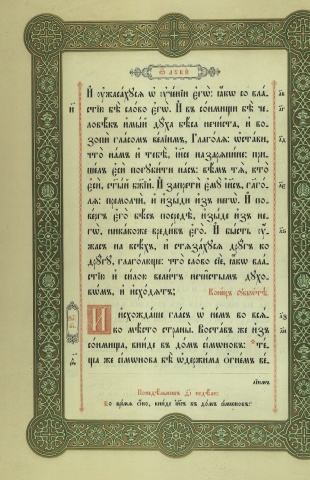 Ѿ ЛУКИ
И҆ ᲂу҆жаса́хꙋсѧ ѡ҆ ᲂу҆че́нїи є҆гѡ̀: ꙗ҆́кѡ со вла́-
стїю бѣ̀ сло́во є҆гѡ̀. И҆ въ со́нмищи бѣ̀ че-
ловѣ́къ и҆мы́й дꙋ́ха бѣ́са нечи́ста, и҆ во-
зопѝ гла́сомъ ве́лїимъ, Глаго́лѧ: ѡ҆ста́ви,
что̀ на́мъ и҆ тебѣ̀, і҆и҃се назарѧни́не; при-
ше́лъ є҆сѝ погꙋби́ти на́съ: вѣ́мъ тѧ̀, кто̀
є҆сѝ, ст҃ы́й бж҃їй. И҆ запретѝ є҆мꙋ̀ і҆и҃съ, глаго́-
лѧ: премолчѝ, и҆ и҆зы́ди и҆з̾ негѡ̀. И҆ по-
ве́ргъ є҆го̀ бѣ́съ посредѣ̀, и҆зы́де и҆з̾ не-
гѡ̀, ника́коже вреди́въ є҆го̀. И҆ бы́сть ᲂу҆́-
жасъ на всѣ́хъ, и҆ стѧза́хꙋсѧ дрꙋ́гъ ко
дрꙋ́гꙋ, глаго́люще: что̀ сло́во сїѐ, ꙗ҆́кѡ вла́-
стїю и҆ си́лою вели́тъ нечи̑стымъ дꙋховѡ́мъ,
и҆ и҆схо́дѧтъ; Коне́цъ сꙋббѡ́тѣ.
И҆ и҆схожда́ше гла́съ ѡ҆ не́мъ во всѧ́-
ко мѣ́сто страны̀. Воста́въ же и҆з̾
со́нмища, вни́де въ до́мъ сі́мѡновъ: те́-
ща же сі́мѡнова бѣ̀ ѡ҆держи́ма ѻ҆гне́мъ ве́-
лїимъ
Во вре́мѧ ѻ҆́но, вни́де і҆и҃съ въ до́мъ сі́мѡновъ: